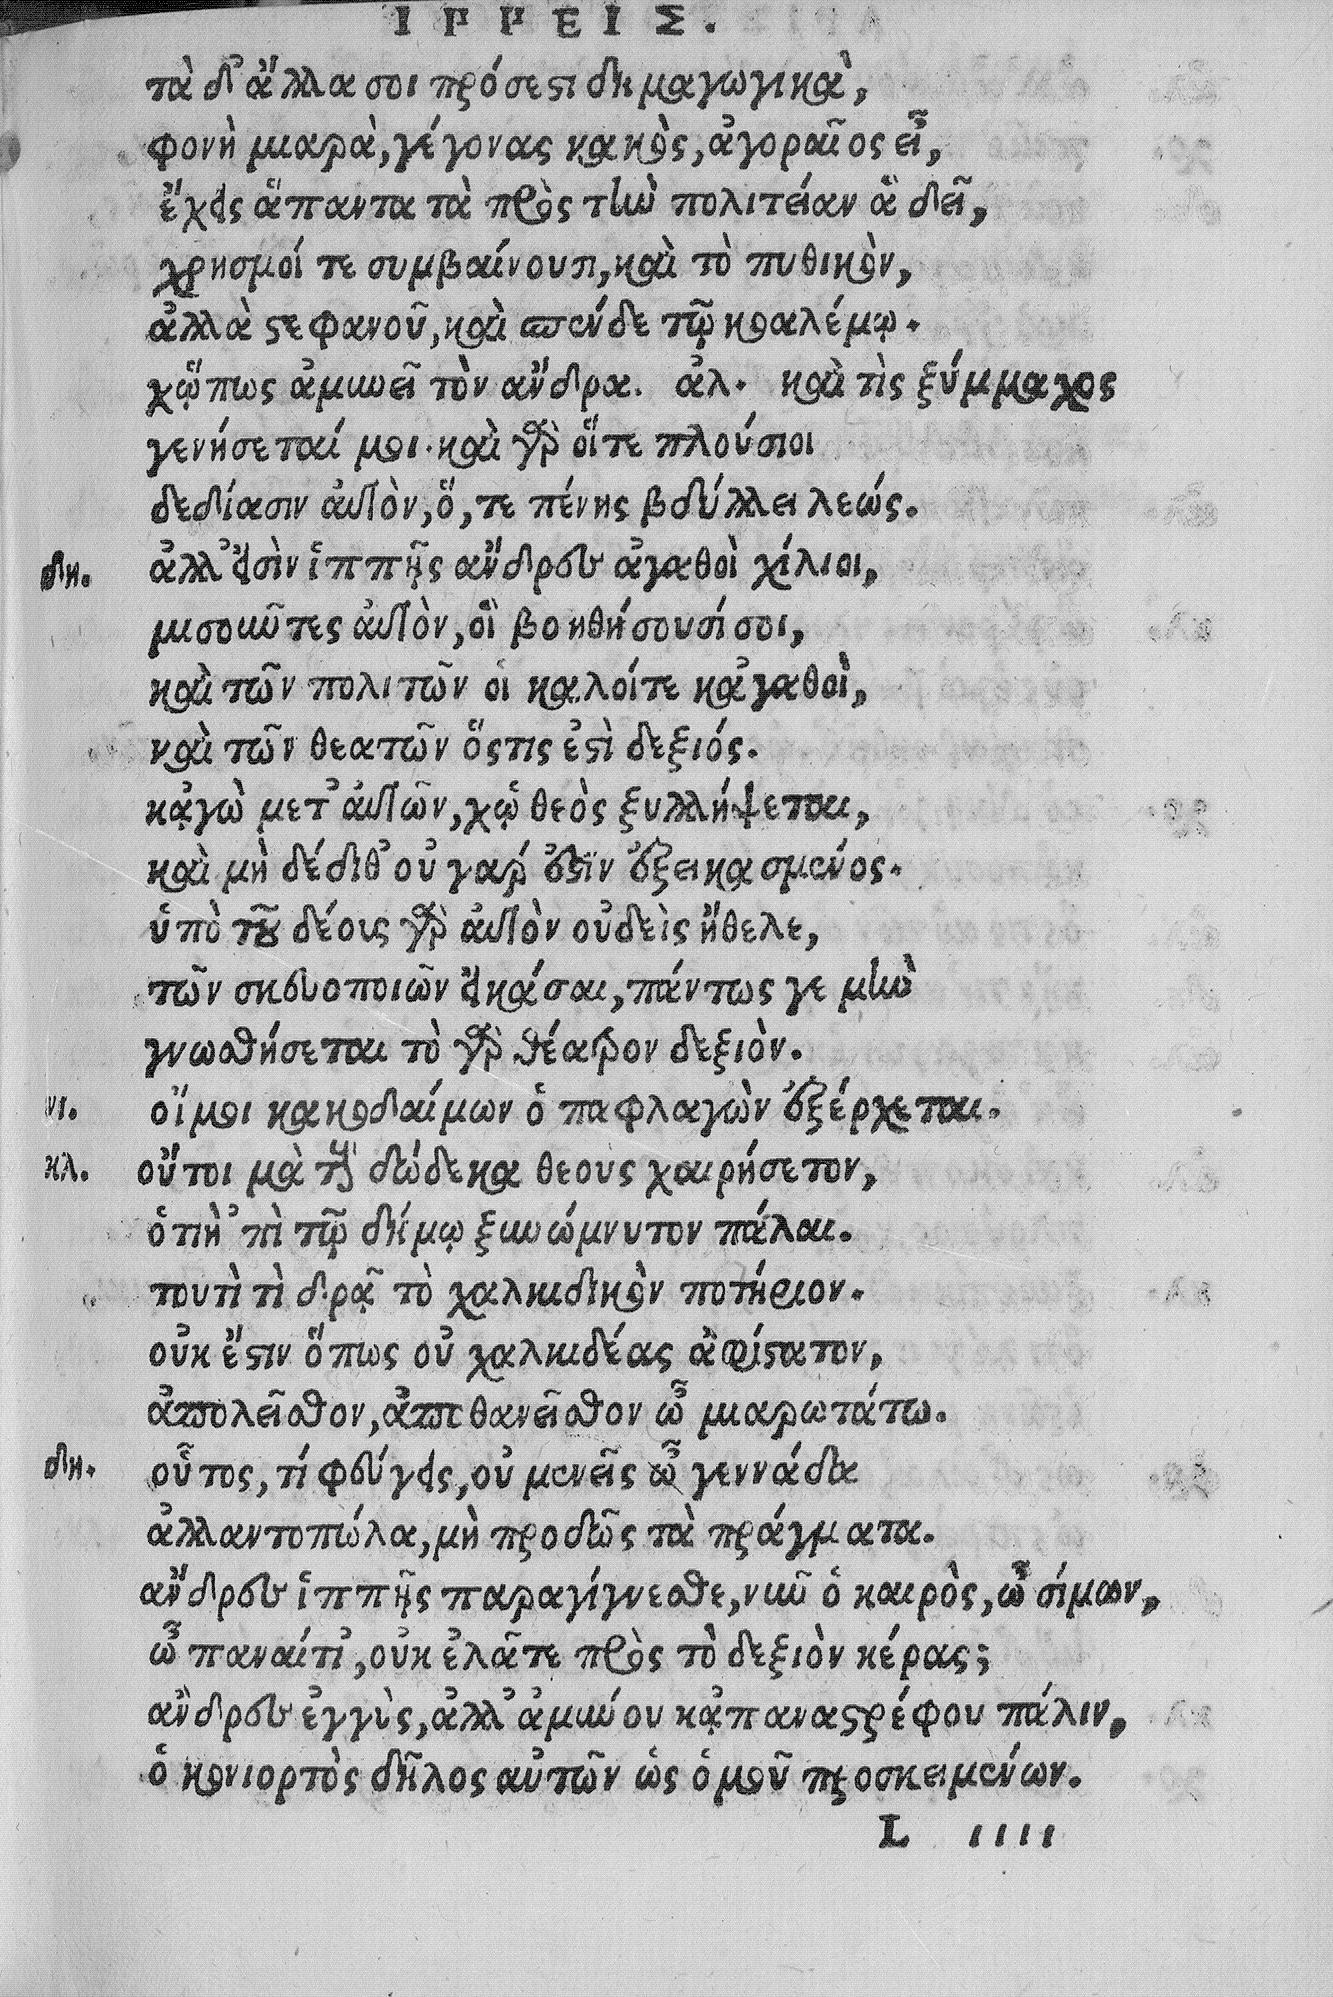 ΙΡΡΕΙΣ.
τὰ δ' ἄλλα σοι πρόσεστι δημαγωγικὰ,
φονὴ μιαρὰ, γέγονας κακὸς, ἀγοραῖος εἶ,
ἔχεις ἅπαντα τὰ πρὸς τὴν πολιτείαν ἃ δεῖ,
χρησμοί τε συμβαίνουσι, καὶ τὸ πυθικὸν,
ἀλλὰ στεφανοῦ, καὶ σπένδε τῷ κοαλέμῳ.
χᾥπως ἀμυνεῖ τὸν ἄνδρα. ἀλ. καὶ τὶς ξύμμαχος
γενήσεταί μοι. καὶ γὰρ οἵ τε πλούσιοι
δεδίασιν αὐτὸν, ὅ, τε πένης βδύλλει λεώς.
δη. ἀλλ' εἰσὶν ἱππῆς ἄνδρες ἀγαθοὶ χίλιοι,
μισοῦντες αὐτὸν, οἳ βοηθήσουσί σοι,
καὶ τῶν πολιτῶν οἱ καλοί τε κἀγαθοὶ,
καὶ τῶν θεατῶν ὅστις ἐστὶ δεξιός.
κᾀγὼ μετ' αὐτῶν, χᾡ θεὸς ξυλλήψεται,
καὶ μὴ δέδιθ' οὐ γάρ ἐστὶν ἐξεικασμένος.
ὑπὸ τοῦ δέους γὰρ αὐτὸν οὐδεὶς ἤθελε,
τῶν σκευοποιῶν εἰκάσαι, πάντως γε μὴν
γνωσθήσεται τὸ γὰρ θέατρον δεξιὸν.
νι. οἴμοι κακοδαίμων ὁ παφλαγὼν ἐξέρχεται.
κλ. οὔτοι μὰ τοὺς δώδεκα θεοὺς χαιρήσετον,
ὁτιὴ 'πὶ τῷ δήμῳ ξυνώμνυτον πάλαι.
τουτὶ τὶ δρᾷ τὸ χαλκιδικὸν ποτήριον.
οὐκ ἔστιν ὅπως οὐ χαλκιδέας ἀφίστατον,
ἀπολεῖσθον, ἀποθανεῖσθον ὦ μιαρωτάτω.
δη. οὗτος, τί φεύγεις, οὐ μενεῖς ὦ γεννάδα
ἀλλαντοπώλα, μὴ προδῶς τὰ πράγματα.
ἄνδρες ἱππῆς παραγίγνεσθε, νῦν ὁ καιρὸς, ὦ σίμων,
ὦ παναίτι', οὐκ ἐλᾶτε πρὸς τὸ δεξιὸν κέρας;
ἄνδρες ἐγγὺς, ἀλλ' ἀμύνου κᾀπαναστρέφου πάλιν,
ὁ κονιορτὸς δῆλος αὐτῶν ὡς ὁμοῦ προσκειμένων.
L iiii